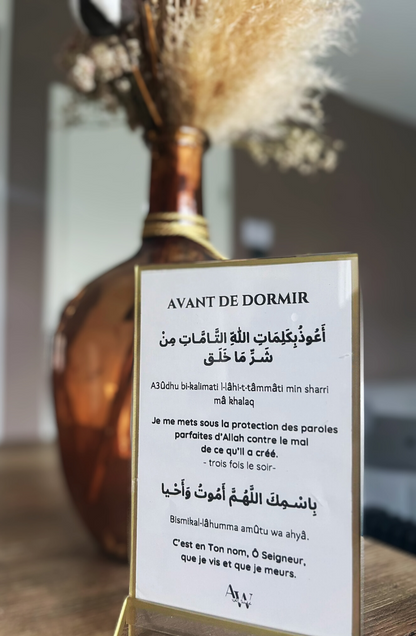 AVANT DE DORMIR
أَعُوذُبِكَلِمَاتِ اللَّهِ التَّامَّاتِ مِنْ
شَرِّ مَا خَلَق
A3ûdhu bi-kalimati l-lâhi-t-tâmmâti min sharri
mâ khalaq
Je me mets sous la protection des paroles
parfaites d'Allah contre le mal
de ce qu'il a créé.
- trois fois le soir-
بِاسْمِكَ اللَّهُمَّ أَمُوتُ وَأَحْيا
Bismikal-lâhumma amûtu wa ahyâ.
C'est en Ton nom, Ô Seigneur,
que je vis et que je meurs.
AW